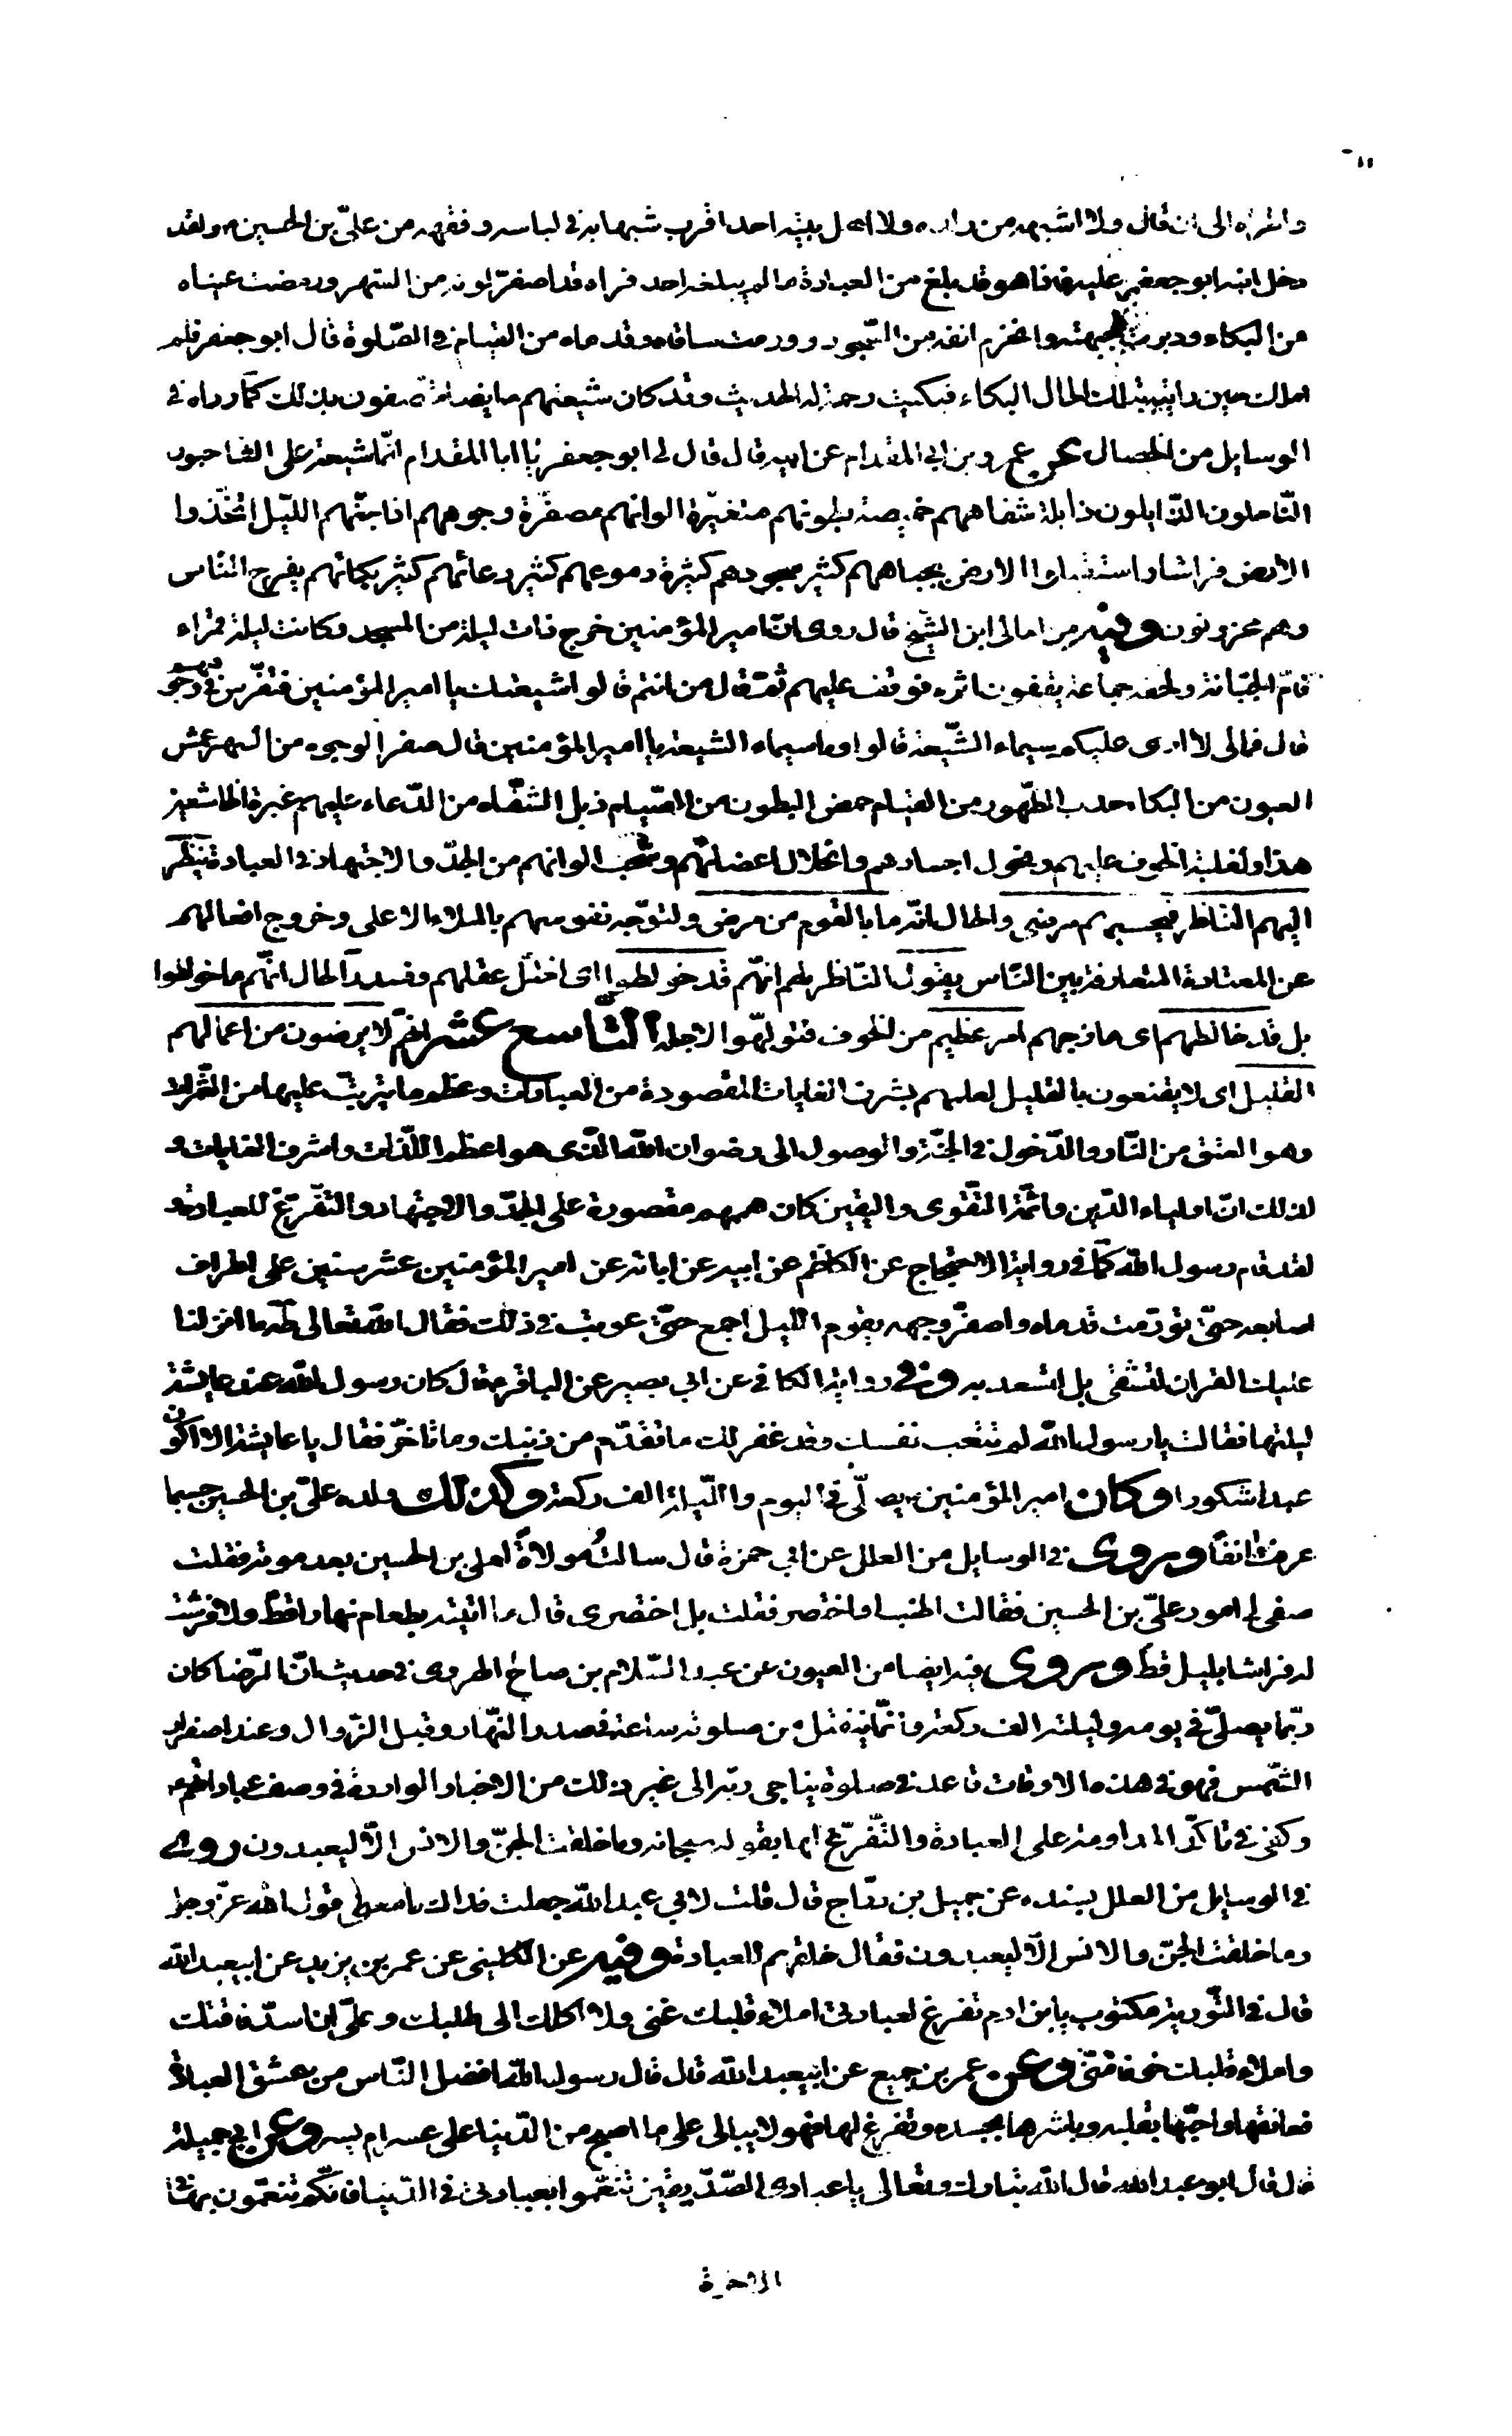 واطراه الى ان قال ولا اشبهه من ولده ولا اهل بيته احد اقرب شبها به فى لباسه وفقهه من علىّ بن الحسين ولقد
دخل ابنه ابو جعفر عليه فاذا هو قد بلغ من العبادة ما لم يبلغه احد فراه قد اصفرّ لونه من السّهر ورمضت عيناه
من البكاء ودبرت جبهته وانخزم انفه من السّجود وورمت ساقاه وقدماه من القيام فى الصّلوة قال ابو جعفر فلم
املك حين رايته بتلك الحال البكاء فبكيت رحمة له الحديث وقد كان شيعتهم ايضا يتّصفون بذلك كما رواه فى
الوسايل من الخصال عن عمرو بن ابى المقدام عن ابيه قال قال لى ابو جعفر يا ابا المقدام انّما شيعة على الشاحبون
النّاحلون الذّابلون ذابلة شفاههم خميصة بطونهم متغيّرة الوانهم مصفرّة وجوههم اذا جنّهم اللّيل اتّخذوا
الارض فراشا واستقبلوا الارض بجباههم كثير سجودهم كثيرة دموعهم كثير دعائهم كثير بكائهم يفرح النّاس
وهم محزونون وفيه من امالى ابن الشّيخ قال روى انّ امير المؤمنين خرج ذات ليلة من المسجد وكانت ليلة قمراء
فامّ الجبّانة ولحقه جماعة يقفون اثره فوقف عليهم ثمّ قال من انتم قالوا شيعتك يا امير المؤمنين فتفرّس فى وجوههم
قال فمالى لا ارى عليكم سيماء الشّيعة قالوا وما سيماء الشيعة يا امير المؤمنين قال صفر الوجوه من السهر عمش
العيون من البكاء حدب الظّهور من القيام خمص البطون من الصّيام ذبل الشفاه من الدّعاء عليهم غبرة الخاشعين
هذا ولغلبة الخوف عليهم ونحول اجسادهم وانحلال اعضائهم وشحب الوانهم من الجدّ والاجتهاد فى العبادة ينظر
اليهم النّاظر فيحسبهم مرضى والحال انّه ما بالقوم من مرض ولتوّجه نفوسهم بالملاء الاعلى وخروج افعالهم
عن المعتادة المتعارفة بين النّاس يقول النّاظر لهم انّهم قد خولطوا اى اختلّ عقلهم وفسد والحال انّهم ما خولطوا
بل قد خالطهم اى مازجهم امر عظيم من الخوف فتولّهوا لاجله التّاسع عشر انّهم لا يرضون من اعمالهم
القليل اى لا يقنعون بالقليل لعلمهم بشرف الغايات المقصودة من العبادات وعظم ما يترتّب عليها من الثّمرات
وهو العتق من النّار والدّخول فى الجنّة والوصول الى رضوان اللّه الّذى هو اعظم اللّذات واشرف الغايات و
لذلك انّ اولياء الدّين وائمّة التّقوى واليقين كان هممهم مقصورة على الجدّ والاجتهاد والتّفرّغ للعبادة و
لقد قام رسول اللّه كما فى رواية الاحتجاج عن الكاظم عن ابيه عن ابائه عن امير المؤمنين عشر سنين على اطراف
اصابعه حتّى تورّمت قدماه واصفرّ وجهه يقوم اللّيل اجمع حتّى عوتب فى ذلك فقال اللّه تعالى طه ما انزلنا
عليك القران لتشقى بل لتسعد به وفى رواية الكافى عن ابى بصير عن الباقر قال كان رسول اللّه عند عايشة
ليلتها فقالت يا رسول اللّه لم تتعب نفسك وقد غفر لك ما تقدّم من ذنبك وما تاخّر فقال يا عايشة الا اكون
عبدا شكورا وكان امير المؤمنين يصلّى فى اليوم واللّيلة الف ركعة وكذلك ولده علىّ بن الحسين حسبما
عرفت انفا وروى فى الوسايل من العلل عن ابى حمزة قال سالت مولاة لعلى بن الحسين بعد موته فقلت
صفى لى امور علىّ بن الحسين فقالت اطنب او اختصر فقلت بل اختصرى قالت ما اتيته بطعام نهارا قطّ ولا فرشت
له فراشا بليل قطّ وروى فيه ايضا من العيون عن عبد السّلام بن صالح الهروى فى حديث انّ الرّضا كان
ربّما يصلّى فى يومه وليلته الف ركعة وانّما ينفتل من صلوته ساعة فى صدر النّهار وقبل الزّوال وعند اصفرار
الشّمس فهو فى هذه الاوقات قاعد فى صلوة يناجى ربّه الى غير ذلك من الاخبار الواردة فى وصف عباداتهم
وكفى فى تاكّد المداومة على العبادة والتّفرّغ لها بقوله سبحانه وما خلقت الجنّ والانس الّا ليعبدون روى
فى الوسايل من العلل بسنده عن جميل بن درّاج قال قلت لابى عبد اللّه جعلت فداك ما معنى قول اللّه عزّ وجلّ
وما خلقت الجنّ والانس الّا ليعبدون فقال خلقهم للعبادة وفيه عن الكلينى عن عمر بن يزيد عن ابيعبد اللّه
قال فى التّورية مكتوب يابن ادم تفرغ لعبادتى املاء قلبك غنى ولا اكلك الى طلبك وعلىّ ان اسدّ فاقتك
واملاء قلبك خوفا منّى وعن عمر بن جميع عن ابيعبد اللّه قال قال رسول اللّه افضل النّاس من عشق العبادة
فعانقها واحبّها بقلبه وباشرها بجسده وتفرغ لها فهو لا يبالى على ما اصبح من الدّنيا على عسر ام يسر وعن ابى جميلة
قال قال ابو عبد اللّه قال اللّه تبارك وتعالى يا عبادى الصّدّيقين تنعّموا بعبادتى فى الدّنيا فانّكم تتنعّمون بها فى
الاخرة